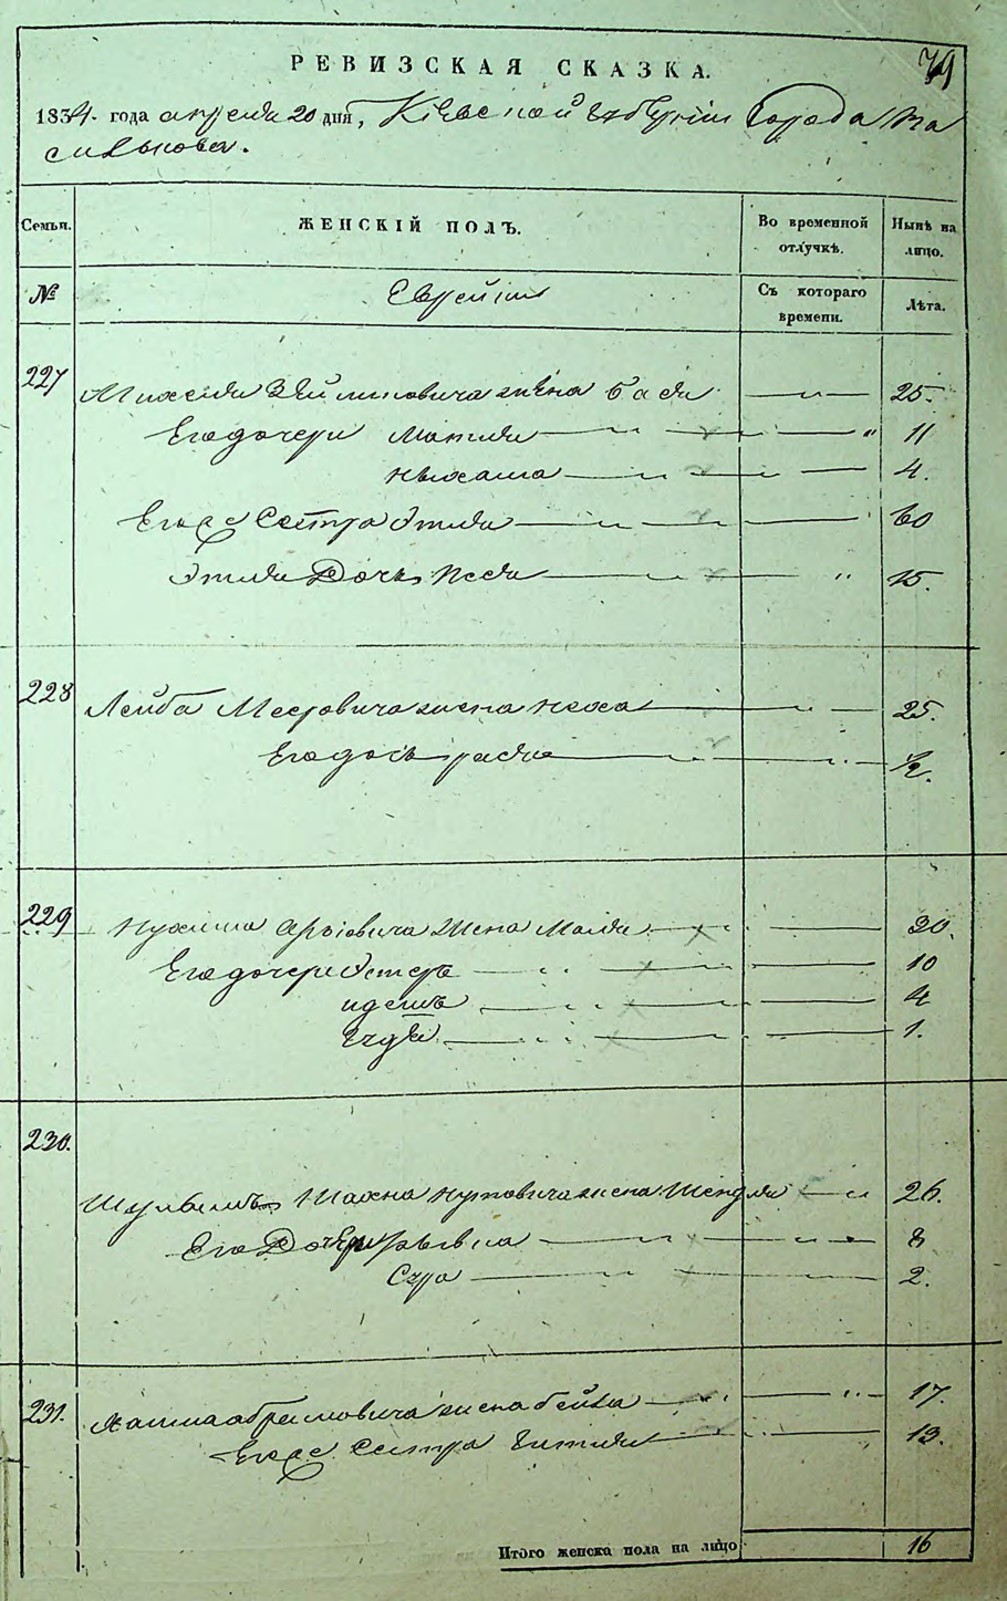 79
РЕВИЗСКАЯ СКАЗКА.
1834 года апреля 20 дня, Кіевской Губерніи Города Ва
силькова.
Семьи. ЖЕНСКІЙ ПОЛЪ. Во временной отлучкѣ. Нынѣ на лицо.
№ Еврейки Съ котораго времени. Лѣта.
227 Михеля Зейликовича жена Бася 25.
Его дочери Матля 11
Нехама 4.
Его же Сестра Этля 60
Этли Дочь Песя 15.
228 Лейба Мееровича жена Неха 25.
Его дочь рася 1/2.
229 Нухима Арьіовича Жена Маля 30.
Его дочери Эстеръ 10
идесъ 4
1.
230. Шульимъ Шахна жена Шендля 26.
Его Дочери 8
Сура 2.
231. абрамовича жена бейла 17.
Его же Сестра Гитля 13.
Итого женска пола на лицо 16